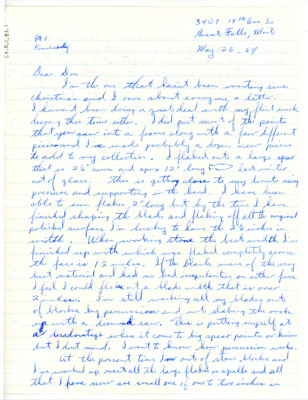 3409 14th Ave. So
Great Falls, Mont
May 26, 64
Dear Don:
I'm the one that hasn't been writing since
christmas and I owe about everyone a letter.
I haven't been doing a great deal with my flint work
during this time either. I did put most of the points
that you saw into a frame along with a few different
pieces and I've made probably a dozen new pieces
to add to my collection. I flaked out a large spear
that is 2½" and aprox 12" long last winter
out of glass. This is getting close to my limit using
pressure and supporting in the hand. I have been
able to run flakes 2" long but by the time I have
finished shaping the blade and flaking off all the original
polished surface I'm lucky to have the 2½ inches in
width. When working stone the best width I've
finished up with which was flaked completely across
the face is 1¾ inches. If the blank was of the very
best material and had no bad irregularities on either face
I feel I could flake out a blade width that is over
2 inches. I'm still working all my blades out
of blocks by percussion and not slabing the rock
up with a diamond saw. This is putting myself at
a disadvantage when it comes to big spear points or knives
but I don't mind. I want to know how percussion works.
At the present time I'm out of stone blocks and
I've worked up most all the large flakes or spalls and all
that I have now are small one of one to two inches in